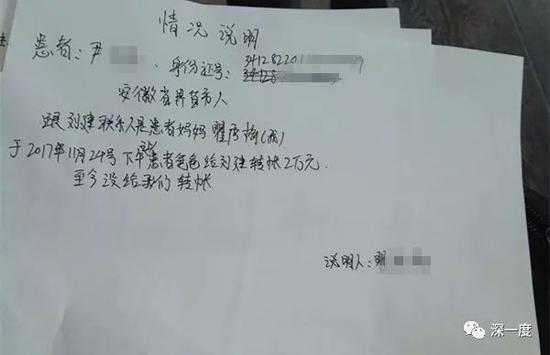 情况说明
患者:尹
身份证号:3412822019
34128
安徽省界首市人
跟刘建联乐人是患者妈妈瞿秀梅(我)
于2017年11月24号下午患者爸爸给刘建转帐2万元.
至今没给我们转帐
说明人:
深一度